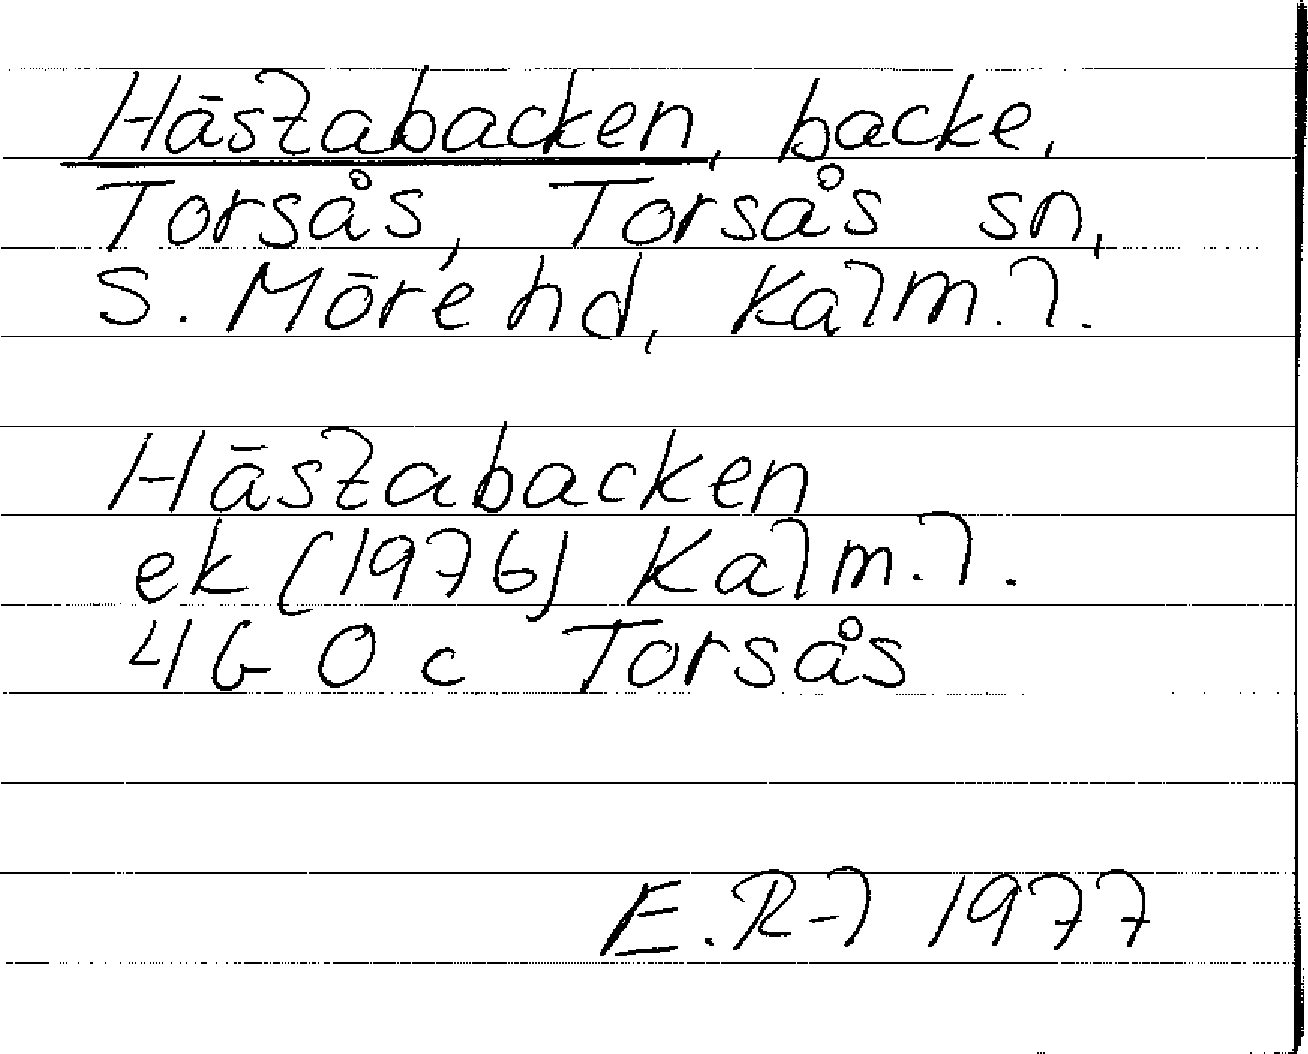 Hästabacken, backe,
Torsås, Torsås sn,
S. Möre hd, Kalm. l.
Hästabacken
ek (1976) Kalm. l.
4G 0c Torsås
E. R-l 1977